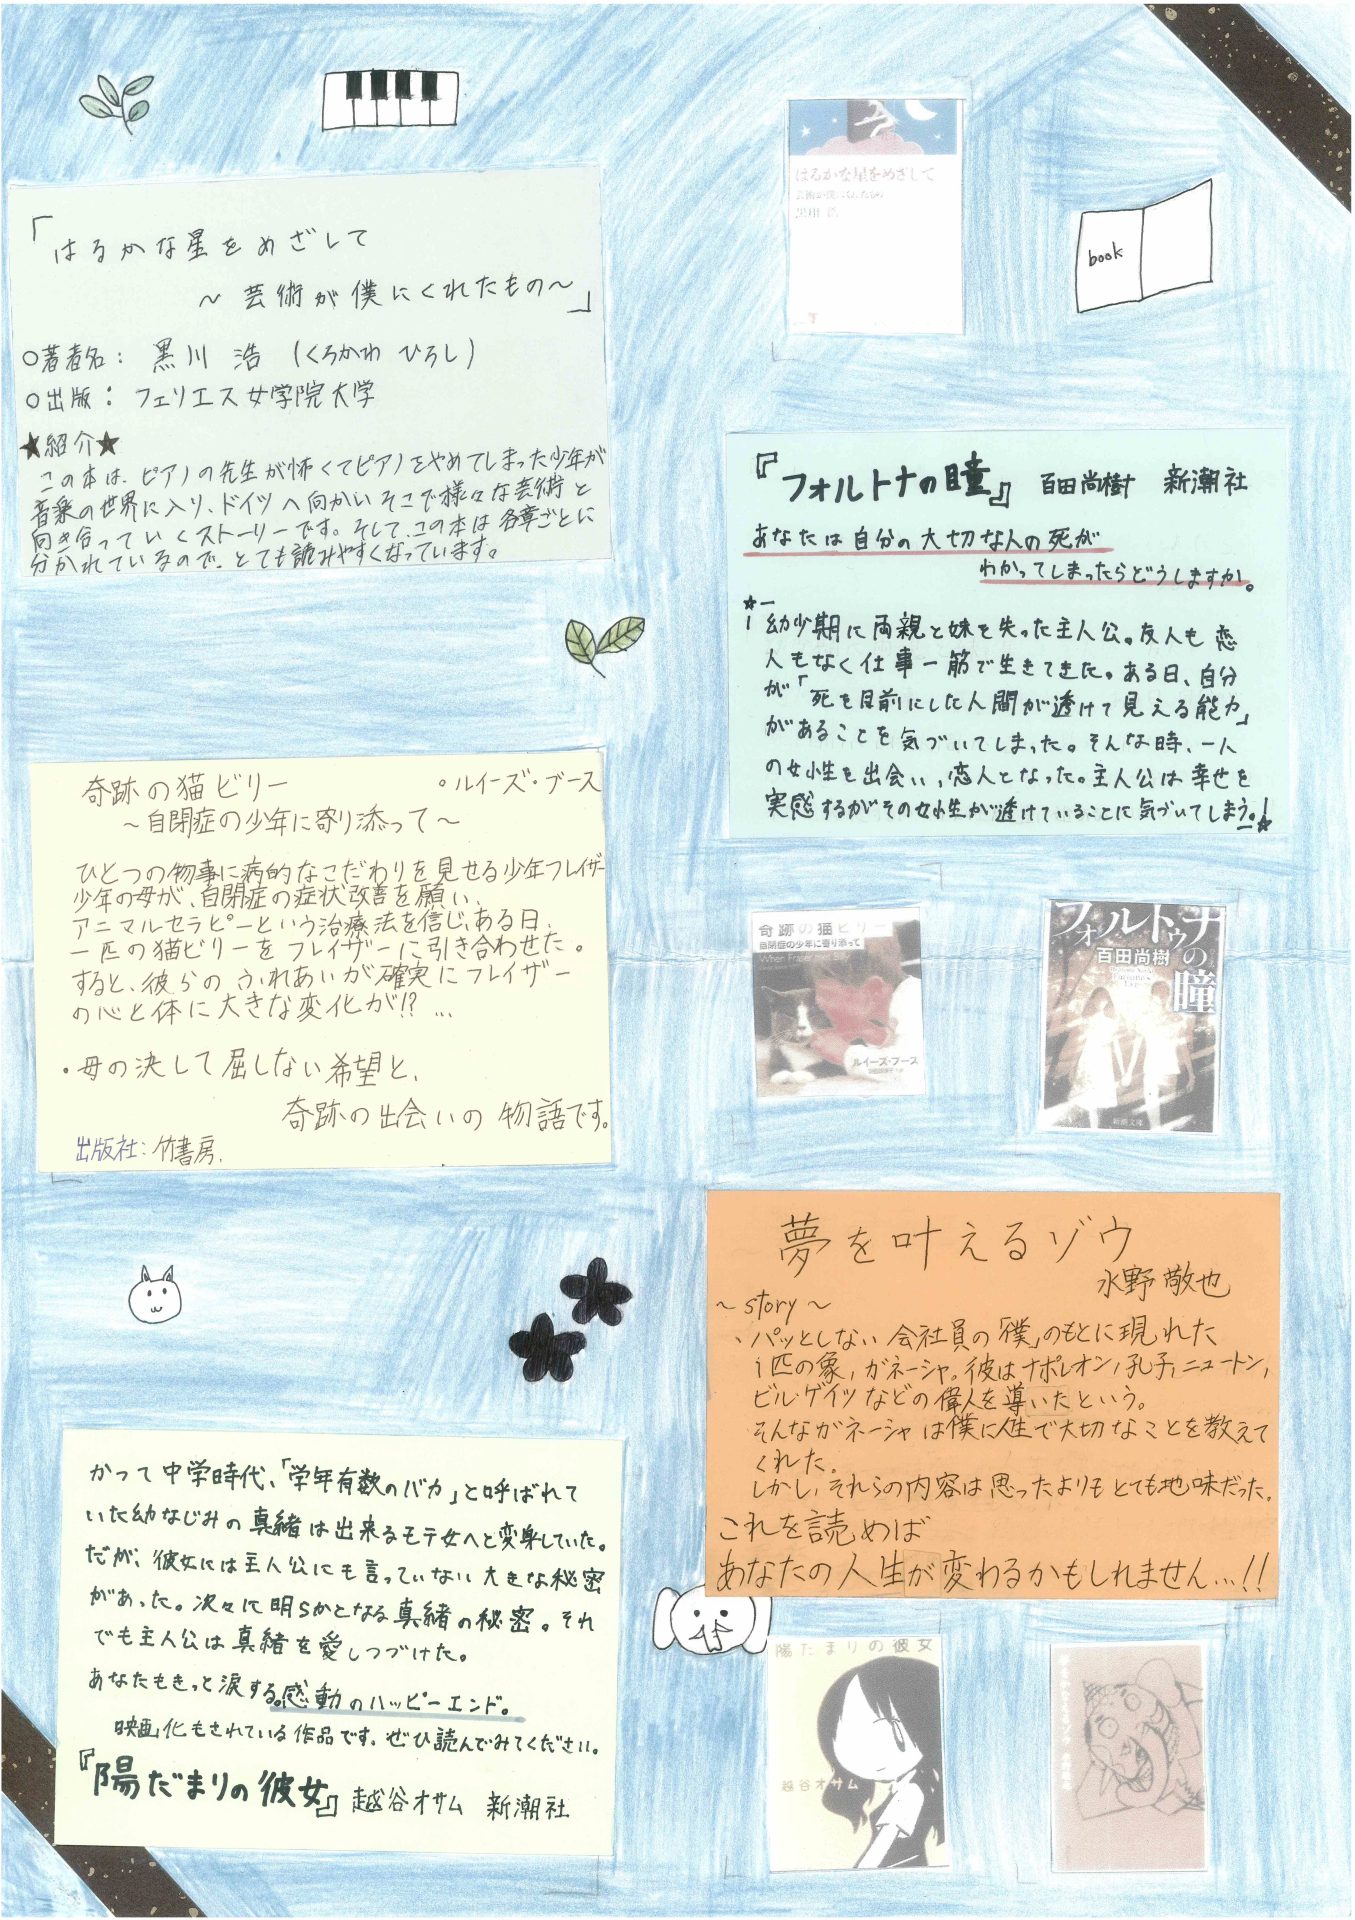 「はるかな星をめざして
～芸術が僕にくれたもの～」
○著者名：黒川 浩（くろかわ ひろし）
○出版：フェリエス女学院大学
★紹介★
この本は、ピアノの先生が怖くてピアノをやめてしまった少年が
音楽の世界に入り、ドイツへ向かいそこで様々な芸術と
向き合っていくストーリーです。そして、この本は各章ごとに
分かれているので、とても読みやすくなっています。
はるかな星をめざして
芸術が僕にくれたもの
黒川 浩
book
『フォルトナの瞳』 百田尚樹 新潮社
あなたは自分の大切な人の死が
わかってしまったらどうしますか。
幼少期に両親と妹を失った主人公。友人も恋
人もなく仕事一筋で生きてきた。ある日、自分
が「死を目前にした人間が透けて見える能力」
があることを気づいてしまった。そんな時、一人
の女性を出会い、恋人となった。主人公は幸せを
実感するがその女性が透けていることに気づいてしまう。
奇跡の猫ビリー 。ルイーズ・ブース
～自閉症の少年に寄り添って～
ひとつの物事に病的なこだわりを見せる少年フレイザー
少年の母が、自閉症の症状改善を願い、
アニマルセラピーという治療法を信じ、ある日、
一匹の猫ビリーをフレイザーに引き合わせた。
すると、彼らのふれあいが確実にフレイザー
の心と体に大きな変化が!? …
・母の決して屈しない希望と、
奇跡の出会いの物語です。
出版社：竹書房.
奇跡の猫ビリー
自閉症の少年に寄り添って
When Fraser met Billy
ルイーズ・ブース
フォルトゥナの瞳
百田尚樹
新潮文庫
夢を叶えるゾウ
水野敬也
～story～
、パッとしない会社員の「僕」のもとに現れた
1匹の象，ガネーシャ。彼はナポレオン，孔子，ニュートン，
ビル・ゲイツなどの偉人を導いたという。
そんなガネーシャは僕に人生で大切なことを教えて
くれた。
しかし，それらの内容は思ったよりもとても地味だった。
これを読めば
あなたの人生が変わるかもしれません…!!
かつて中学時代、「学年有数のバカ」と呼ばれて
いた幼なじみの真緒は出来るモテ女へと変身していた。
だが、彼女には主人公にも言っていない大きな秘密
があった。次々に明らかとなる真緒の秘密。それ
でも主人公は真緒を愛しつづけた。
あなたもきっと涙する。感動のハッピーエンド。
映画化もされている作品です。ぜひ読んでみてください。
『陽だまりの彼女』越谷オサム 新潮社
陽だまりの彼女
越谷オサム